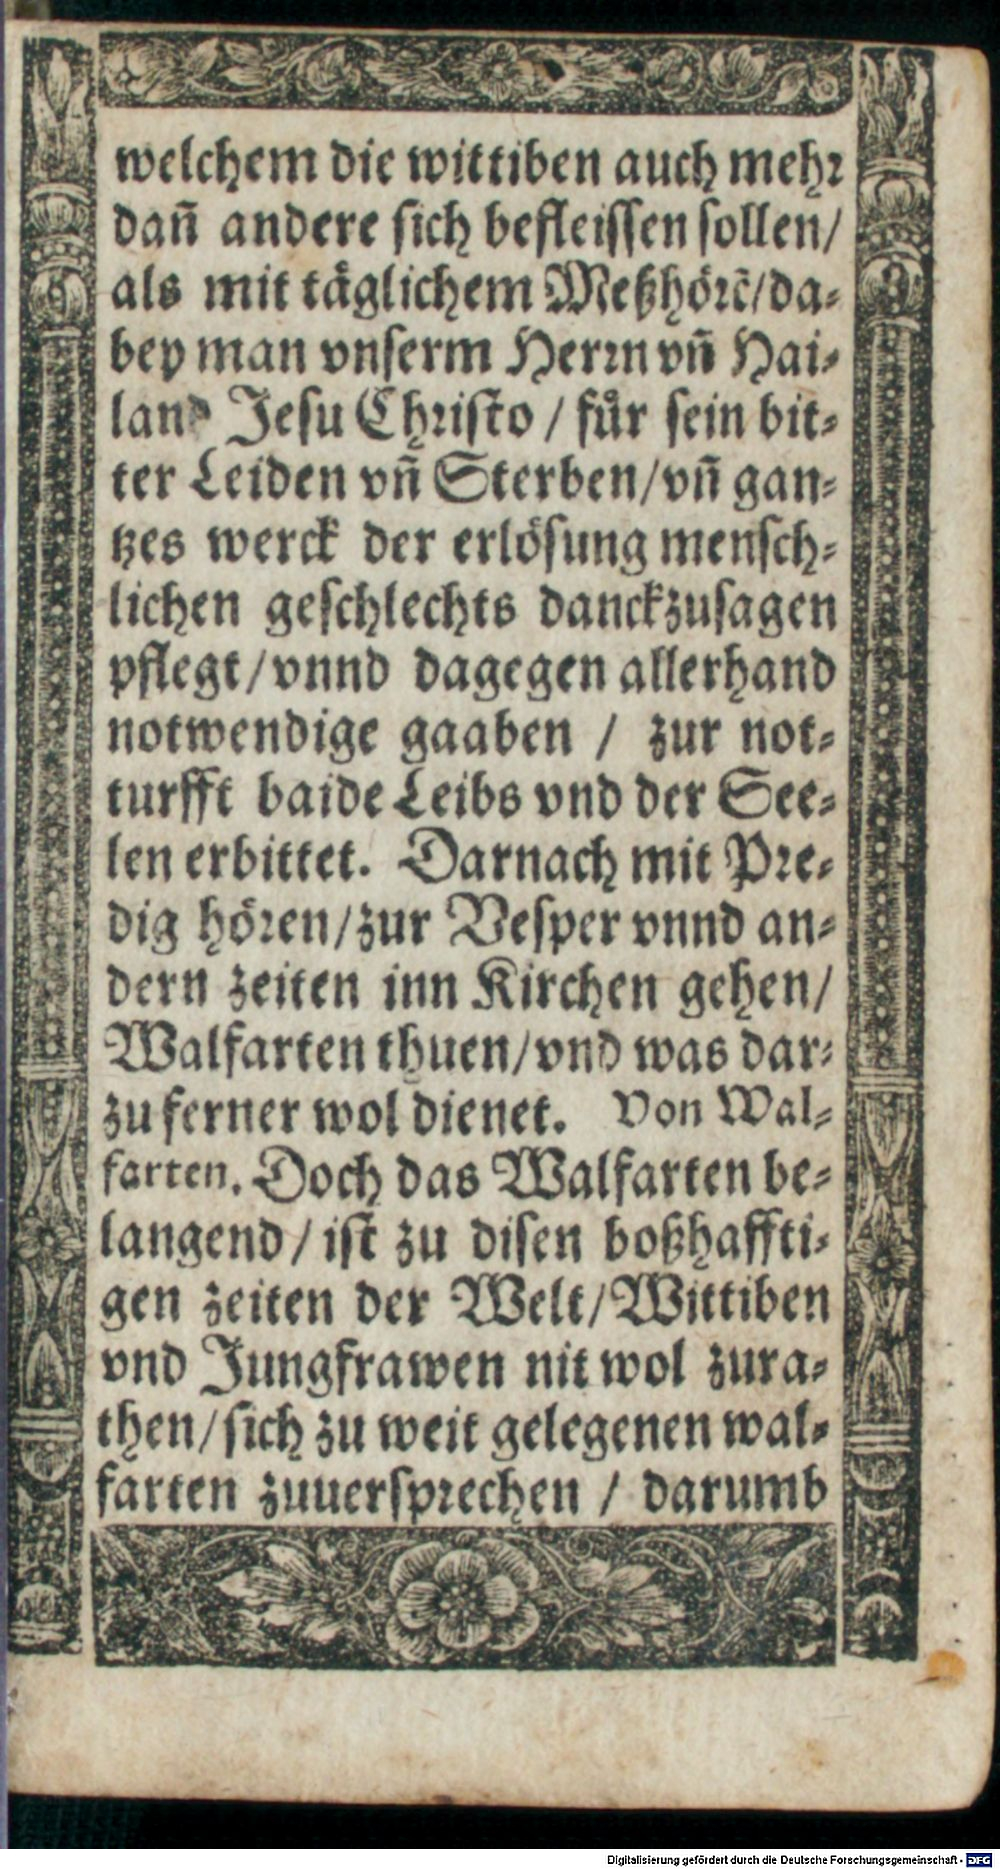 welchem die wittiben auch mehr
dañ andere sich befleissen sollen/
als mit täglichem Meßhörẽ/da-
bey man vnserm Herrn vñ Hai-
land Jesu Christo / fůr sein bit-
ter Leiden vñ Sterben/vñ gan-
tzes werck der erlösung mensch-
lichen geschlechts danckzusagen
pflegt/vnnd dagegen allerhand
notwendige gaaben / zur not-
turfft baide Leibs vnd der See-
len erbittet. Darnach mit Pre-
dig hören/zur Vesper vnnd an-
dern zeiten inn Kirchen gehen/
Walfarten thuen/vnd was dar-
zu ferner wol dienet. Von Wal-
farten. Doch das Walfarten be-
langend/ist zu disen boßhaffti-
gen zeiten der Welt/Wittiben
vnd Jungfrawen nit wol zura-
then/sich zu weit gelegenen wal-
farten zuuersprechen / darumb
Digitalisierung gefördert durch die Deutsche Forschungsgemeinschaft - DFG